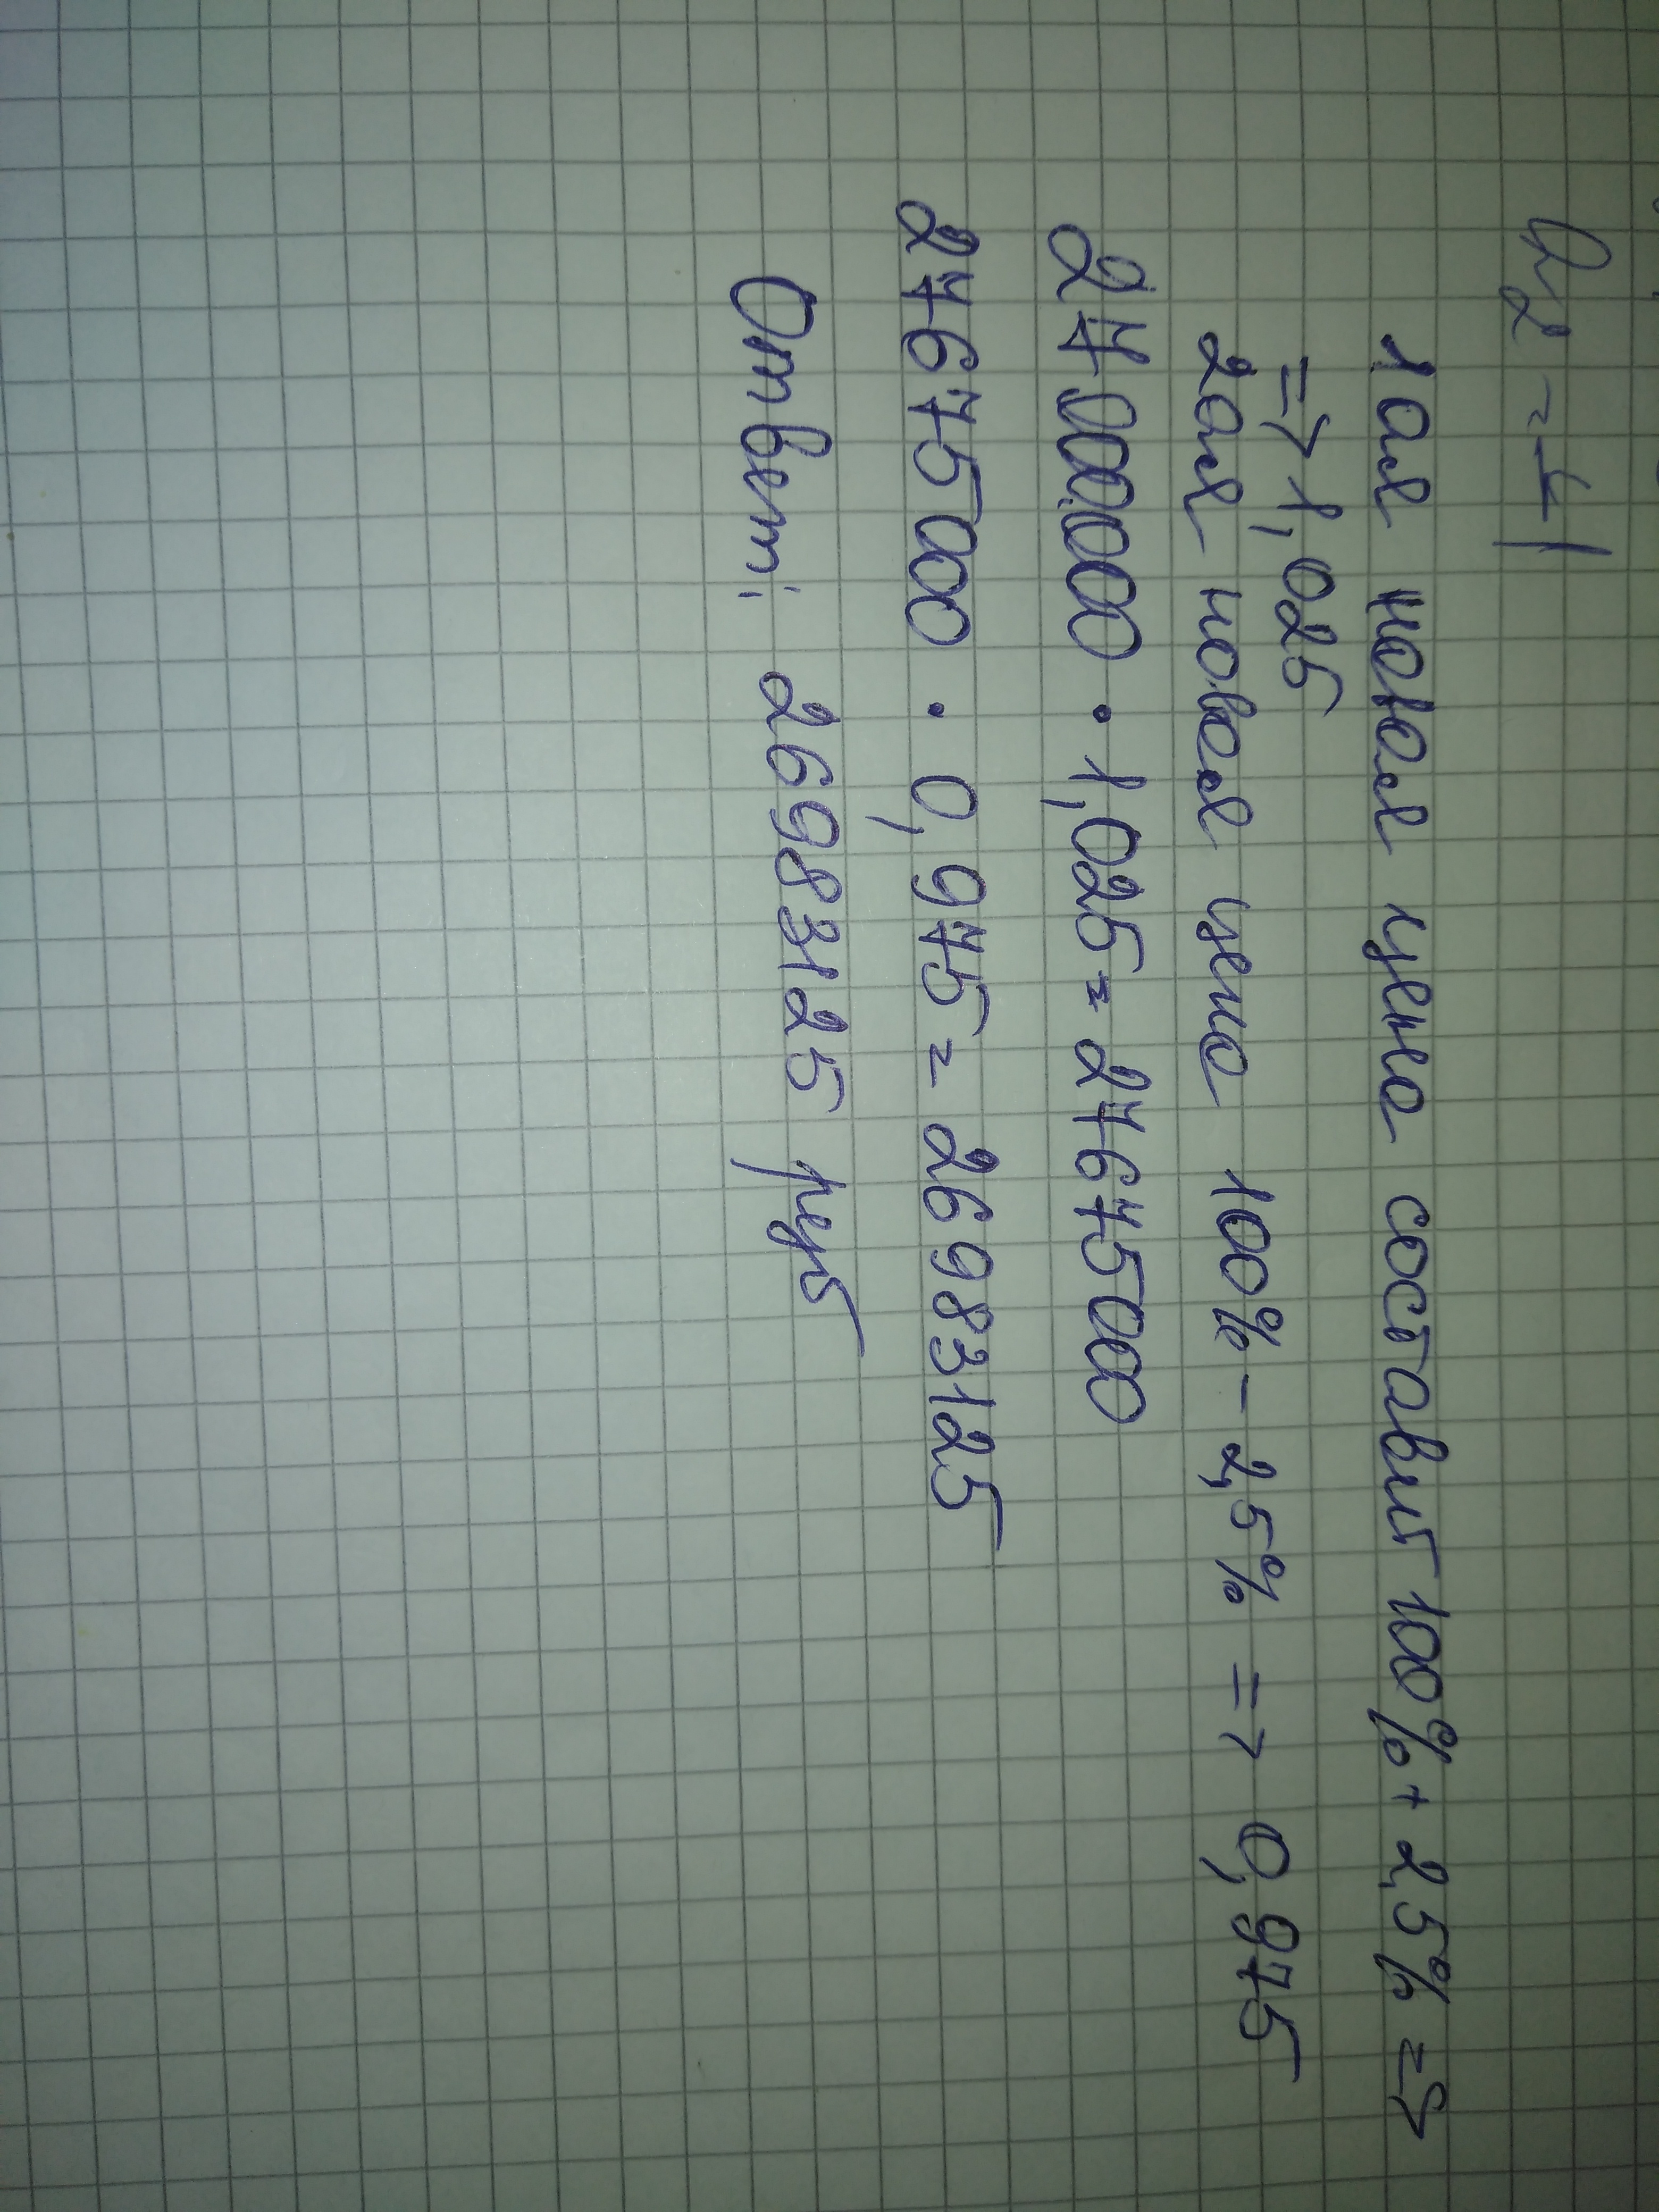 1ая новая цена составит 100% + 2,5% =>
=> 1,025
2ая новая цена 100% - 2,5% => 0,975
27000000 · 1,025 = 27675000
27675000 · 0,975 = 26983125
Ответ: 26983125 руб